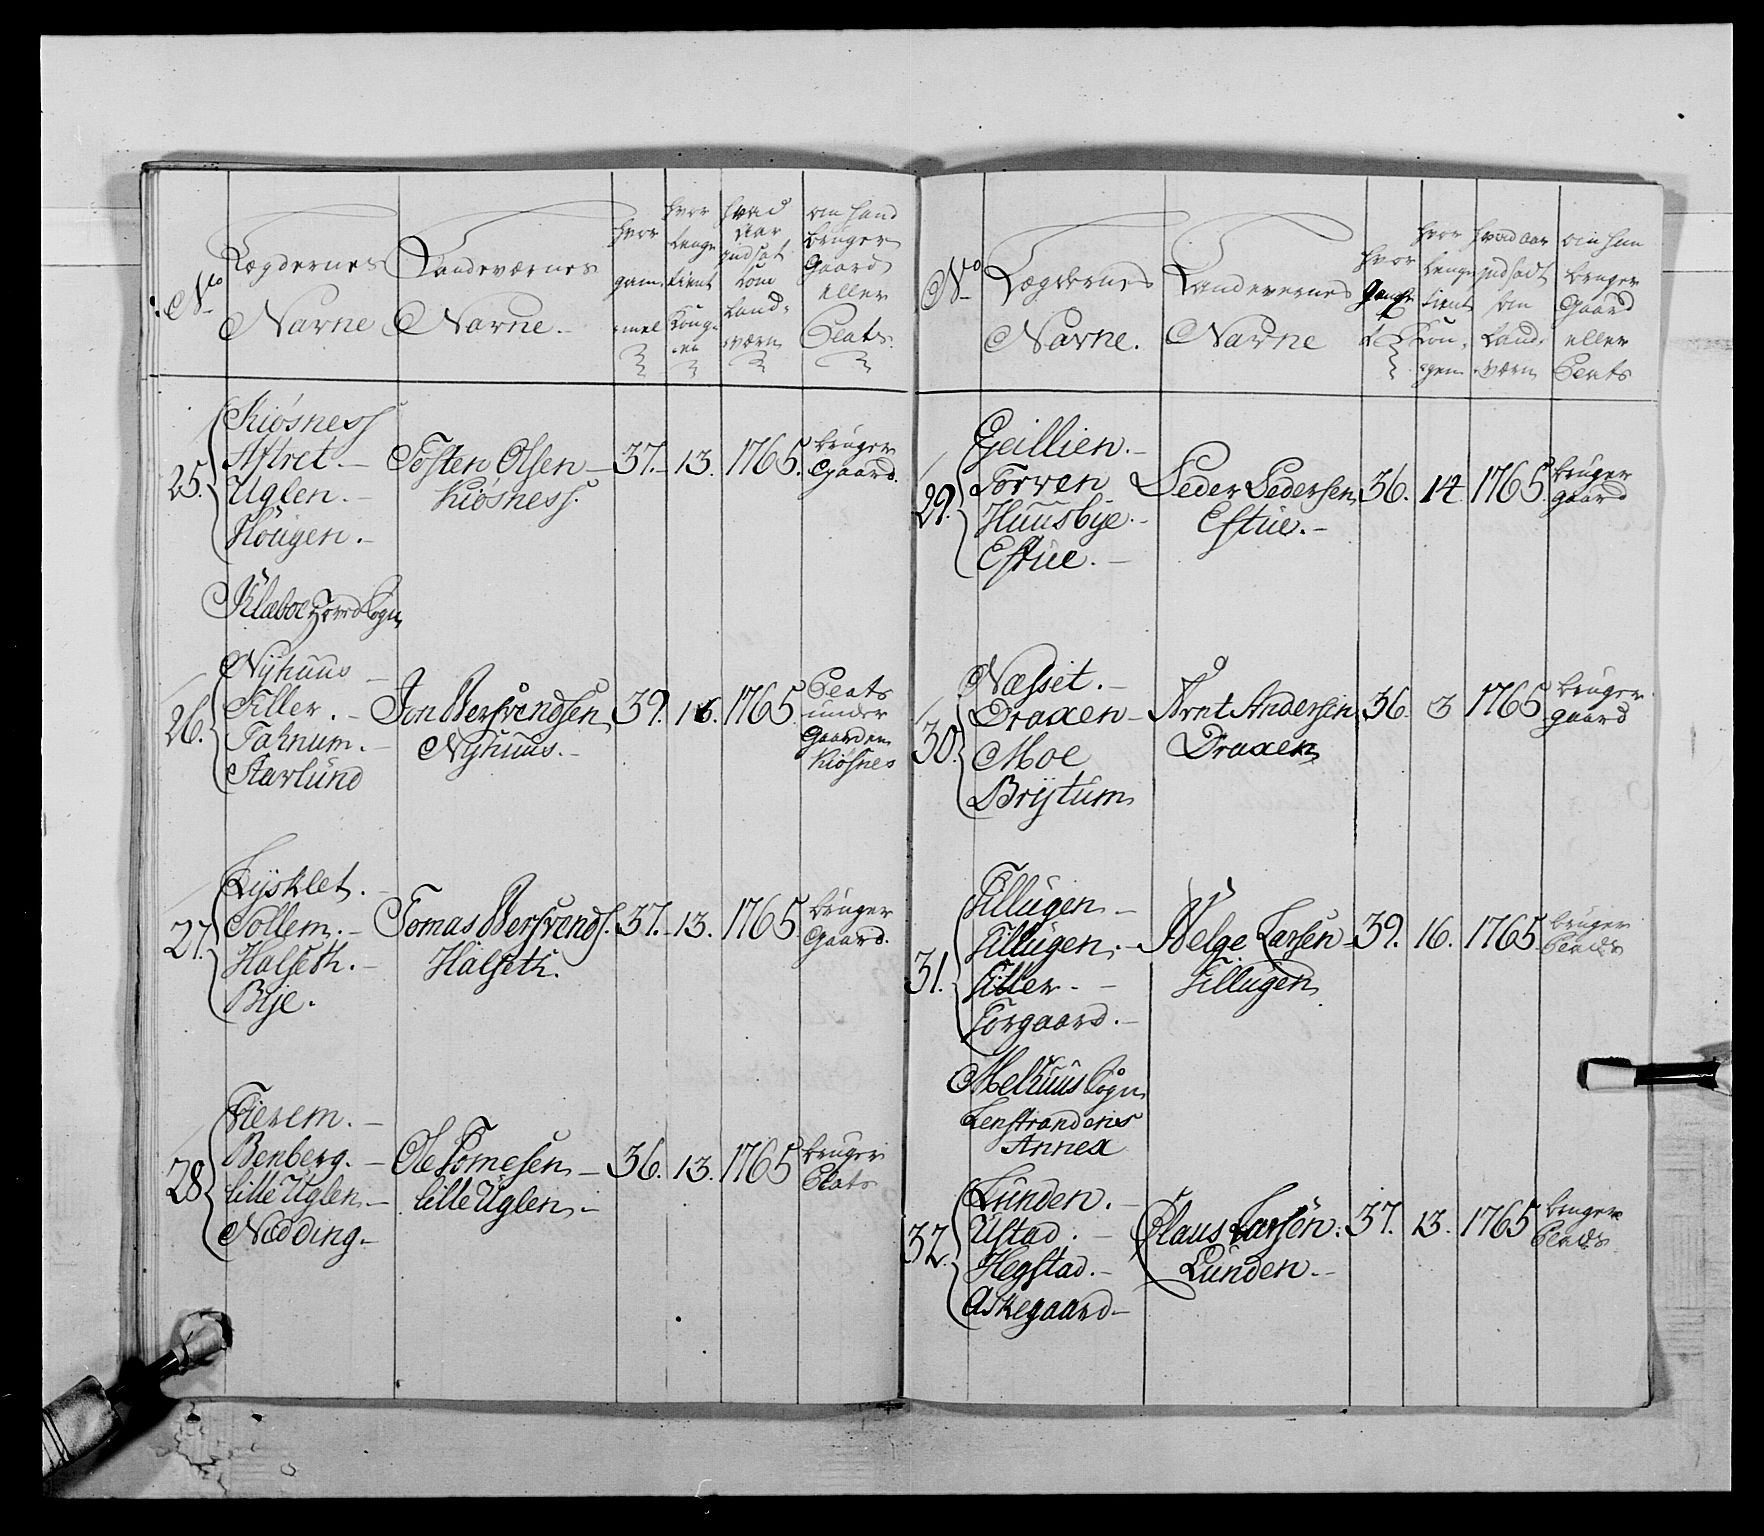 No
Lægdernes
Navne
Landeværnes
Navne.
hvor
gam
mel
hvor
lenge
tient
Kong-
en
hvad
aar
indsat
som
Land-
værn
om hand
bruger
Gaard
eller
Plats.
25.
Kiösness
Aftret.
Uglen.
Höugen.
Tosten Olsen
Kiösness.
37.
13.
1765.
bruger
Gaard.
Klæboe Sogn
26.
Nyhuus
Tiller.
Tahnum.
Starlund
Jon Bersvendsen
Nyhuus.
39.
16.
1765.
Plats
under
Gaarden
Kiösnes
27.
Lysklet.
Sollem.
Halseth.
Bye.
Tomas Bersvends.
Halseth.
37.
13.
1765.
bruger
Gaard.
28
Fierem.
Benberg.
Lille Uglen
Nedding
Ole Tomesen
Lille Uglen
36.
13.
1765
bruger
Plats
No
Lægdernes
Navne.
Landevernes
Navne
hvor
gam̃el
hvor
lenge
tient
Kon-
gen
hvad aar
indsadt
som
Land-
værn
om han
bruger
Gaard
eller
Plats
29.
Geillien.
Torven
Huusbye.
Estue.
Peder Pedersen
Estue.
36.
14
1765.
bruger
gaard
30.
Næsset.
Draxen
Moe
Brytum
Arnt Andersen
Draxen
36.
3
1765
bruger
gaard
31.
Tillugen
Tillugen.
Tiller.
Torgaard.
Helge Larsen
Tillugen
39.
16.
1765.
bruger
Plads
Melhuus Sogn
Leinstrandens
Annex
32.
Lunden.
Ustad.
Hegstad.
Askegaard
Claus Larsen.
Lunden.
37.
13.
1765
bruger
Plads